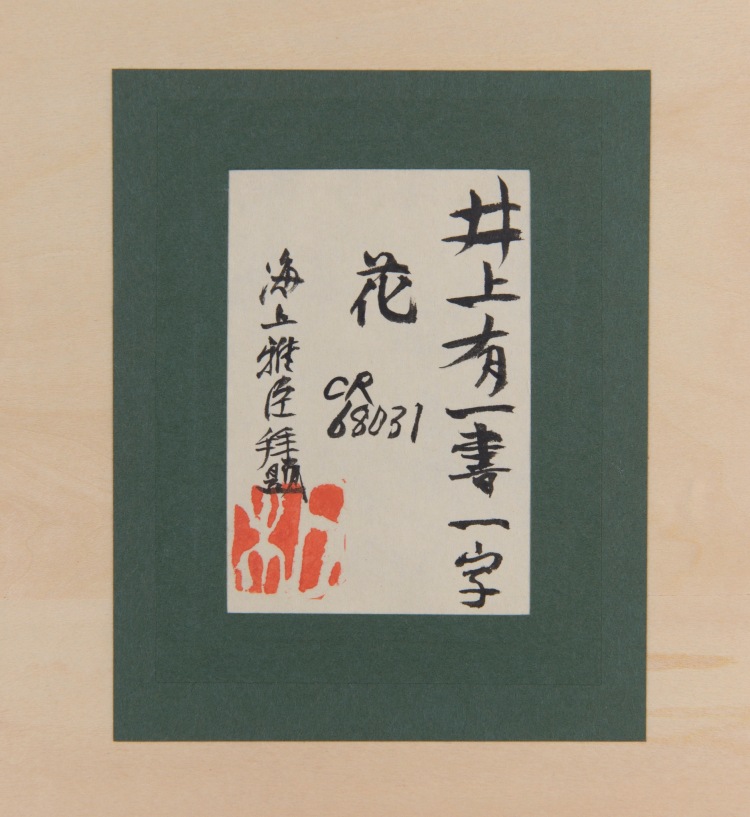 井上有一書一字
花
CR
68031
海上雅臣拜題